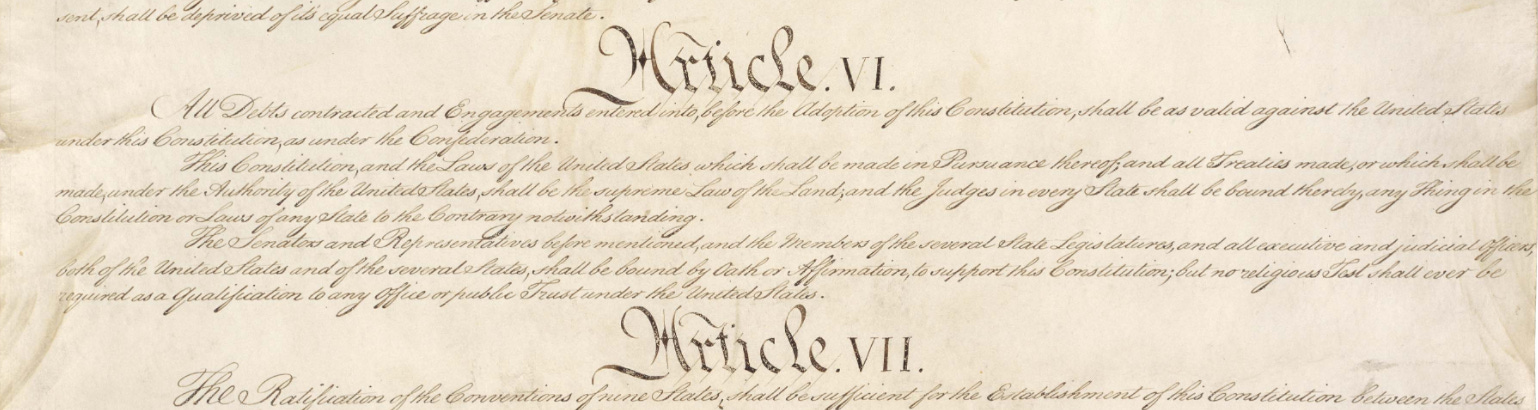 sent, shall be deprived of its equal Suffrage in the Senate.
Article. VI.
All Debts contracted and Engagements entered into, before the Adoption of this Constitution, shall be as valid against the United States
under this Constitution, as under the Confederation.
This Constitution, and the Laws of the United States which shall be made in Pursuance thereof; and all Treaties made, or which shall be
made, under the Authority of the United States, shall be the supreme Law of the Land; and the Judges in every State shall be bound thereby, any Thing in the
Constitution or Laws of any State to the Contrary notwithstanding.
The Senators and Representatives before mentioned, and the Members of the several State Legislatures, and all executive and judicial Officers,
both of the United States and of the several States, shall be bound by Oath or Affirmation, to support this Constitution; but no religious Test shall ever be
required as a Qualification to any Office or public Trust under the United States.
Article. VII.
The Ratification of the Conventions of nine States, shall be sufficient for the Establishment of this Constitution between the States